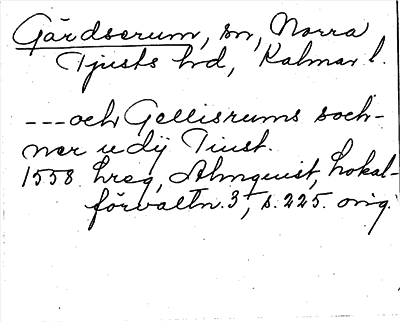 Gärdserum, sn, Norra
Tjusts hd, Kalmar l.
---och Gellisrums soch-
ner udij Tiust.
1558 hreg, Almquist, Lokal-
förvaltn. 3, s. 225. orig.